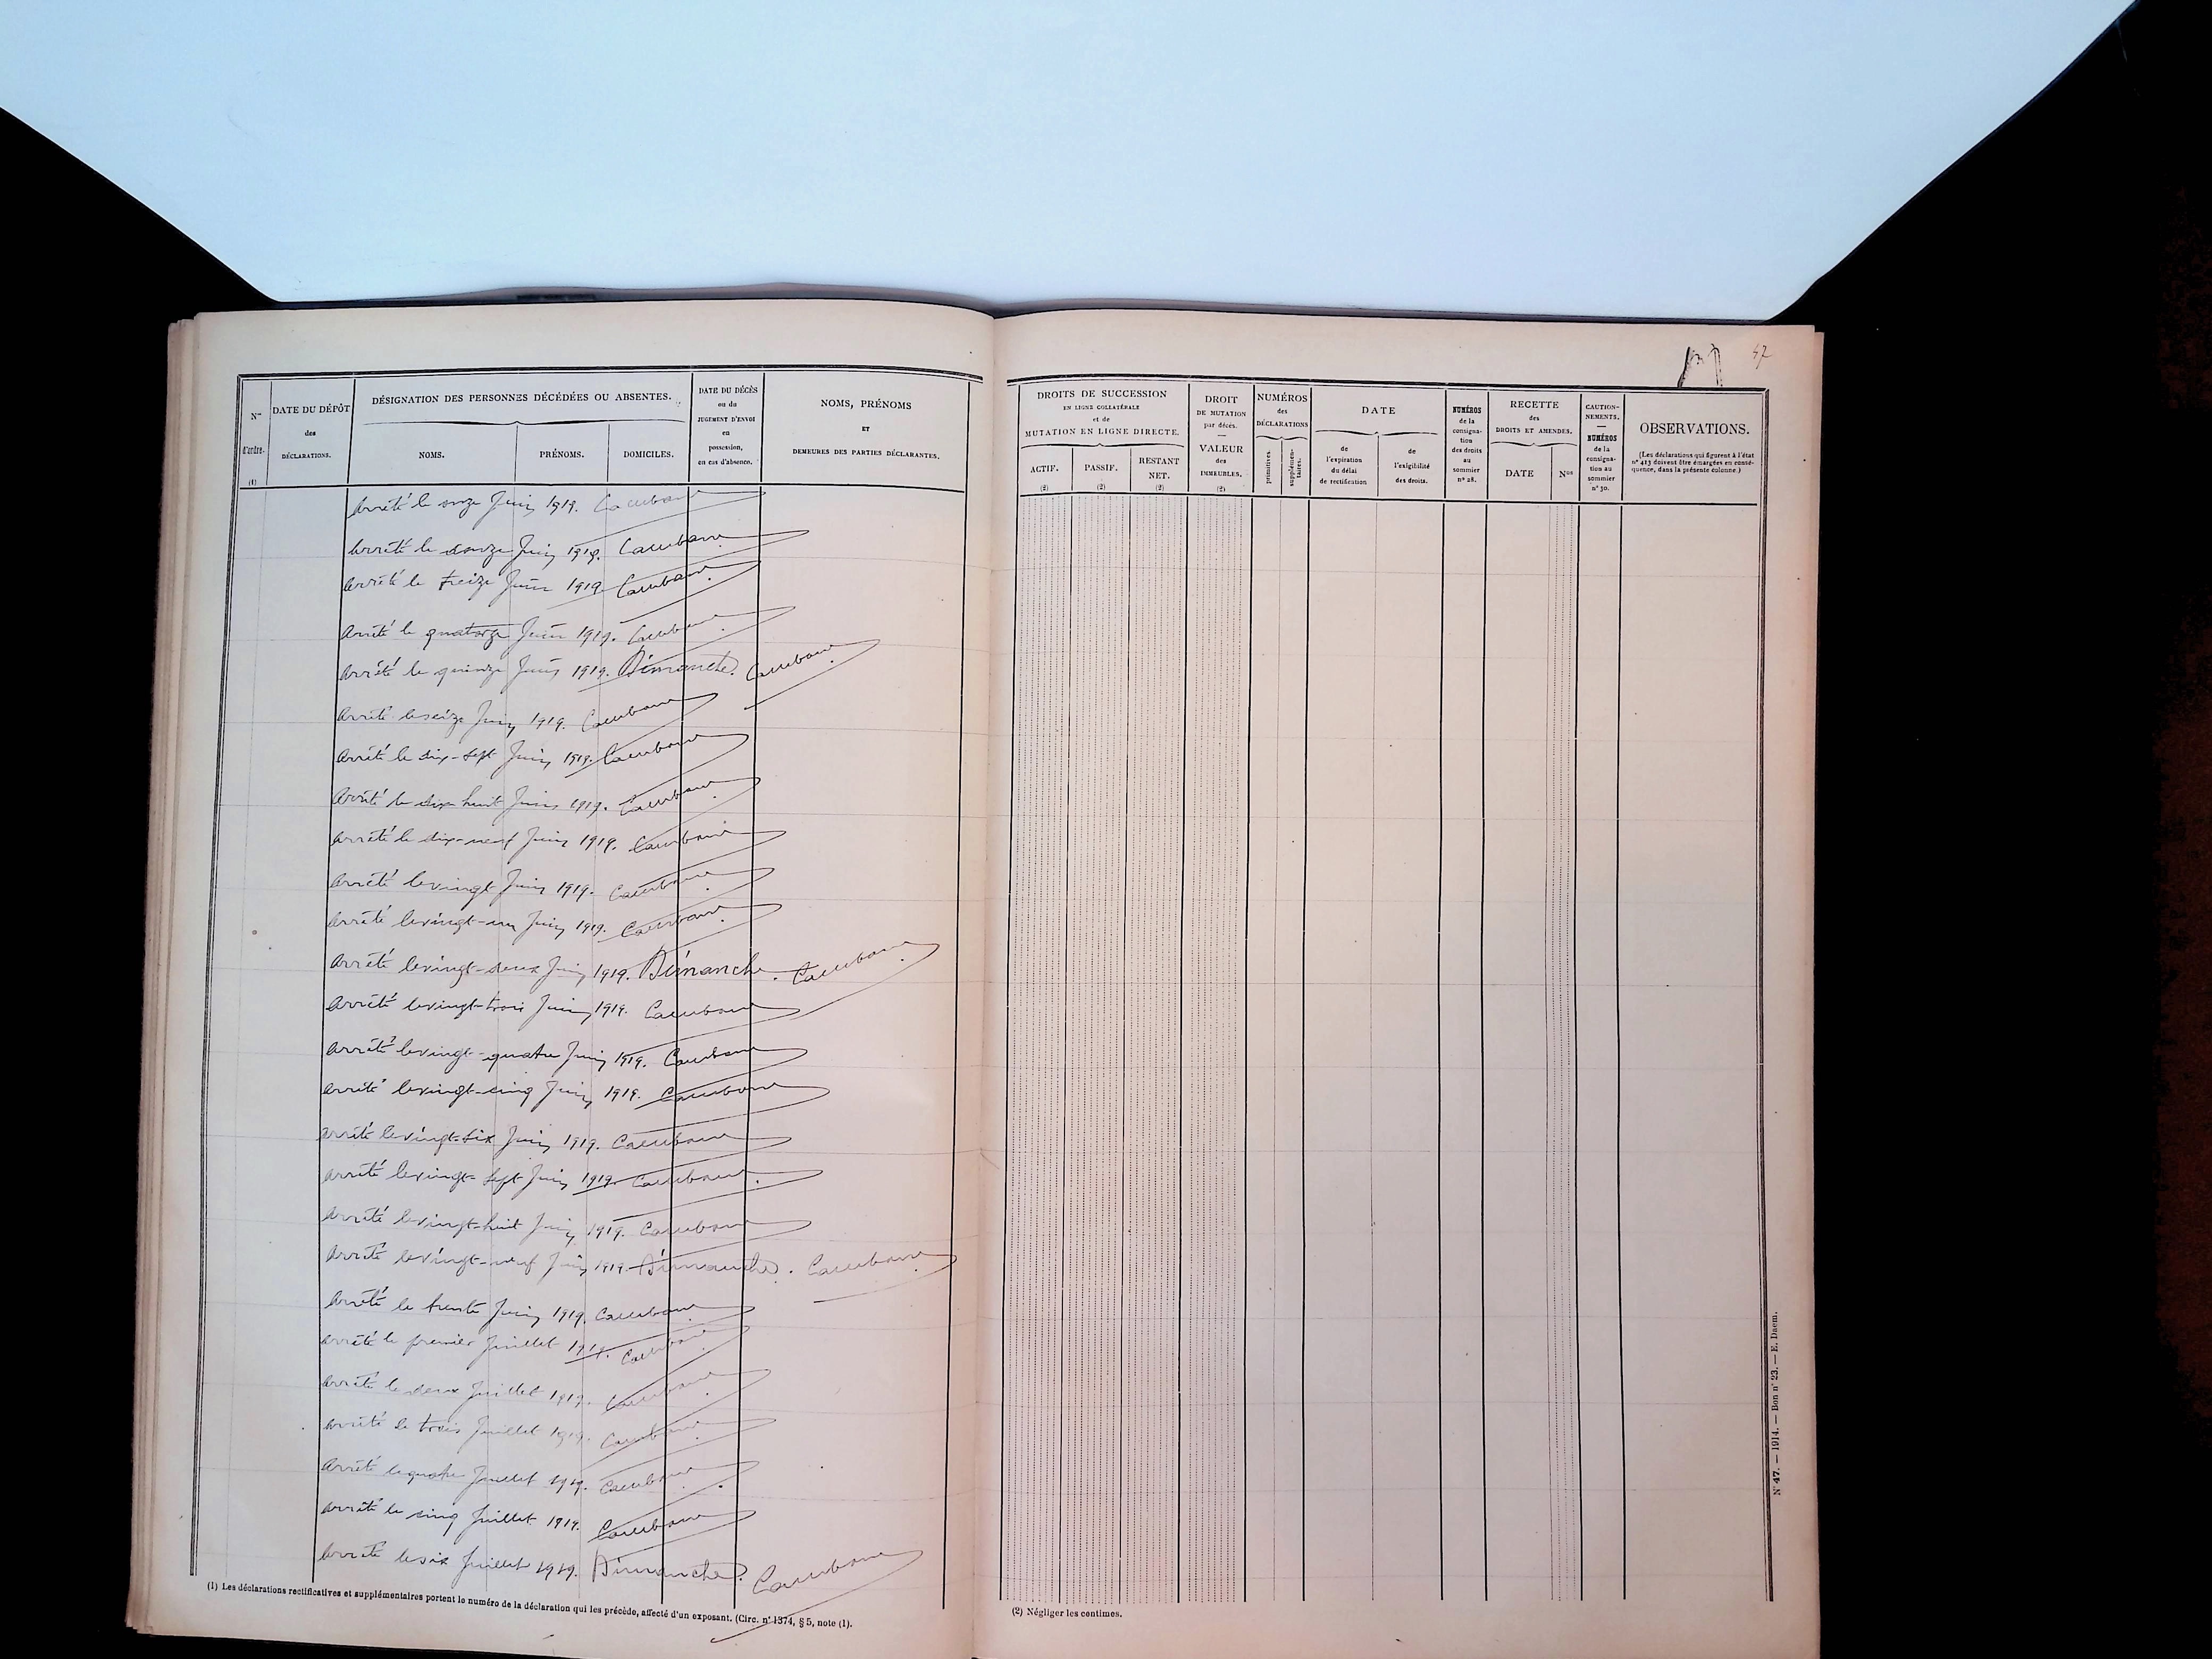 47
Nos d'ordre. (1)
DATE DU DÉPÔT des DÉCLARATIONS.
DÉSIGNATION DES PERSONNES DÉCÉDÉES OU ABSENTES.
NOMS.
PRÉNOMS.
DOMICILES.
DATE DU DÉCÈS ou du JUGEMENT D'ENVOI en possession, en cas d'absence.
NOMS, PRÉNOMS ET DEMEURES DES PARTIES DÉCLARANTES.
Arrêté le onze Juin 1919.
Arrêté le douze Juin 1919.
Arrêté le treize Juin 1919
Arrêté le quatorze Juin 1919.
Arrêté le quinze Juin 1919. Dimanche.
Arrêté le seize Juin 1919.
Arrêté le dix-sept Juin 1919.
Arrêté le dix-huit Juin 1919.
Arrêté le dix-neuf Juin 1919.
Arrêté le vingt Juin 1919.
Arrêté le vingt-un Juin 1919.
Arrêté le vingt-deux Juin 1919. Dimanche.
Arrêté le vingt-trois Juin 1919.
Arrêté le vingt-quatre Juin 1919.
Arrêté le vingt-cinq Juin 1919.
Arrêté le vingt-six Juin 1919.
Arrêté le vingt-sept Juin 1919.
Arrêté le vingt-huit Juin 1919.
Arrêté le vingt-neuf Juin 1919. Dimanche.
Arrêté le trente Juin 1919.
Arrêté le premier Juillet 1919.
Arrêté le deux Juillet 1919.
Arrêté le trois Juillet 1919.
Arrêté le quatre Juillet 1919.
Arrêté le cinq Juillet 1919.
Arrêté le six Juillet 1919. Dimanche.
(1) Les déclarations rectificatives et supplémentaires portent le numéro de la déclaration qui les précède, affecté d'un exposant. (Circ. n° 1374, § 5, note (1).
DROITS DE SUCCESSION
EN LIGNE COLLATÉRALE
et de
MUTATION EN LIGNE DIRECTE.
ACTIF. (2)
PASSIF. (2)
RESTANT NET. (2)
DROIT DE MUTATION par décès. — VALEUR des IMMEUBLES. (2)
NUMÉROS des DÉCLARATIONS
primitives.
supplémentaires.
DATE
de l'expiration du délai de rectification
de l'exigibilité des droits.
NUMÉROS de la consignation des droits au sommier n° 28.
RECETTE des DROITS ET AMENDES.
DATE
Nos
CAUTIONNEMENTS. — NUMÉROS de la consignation au sommier n° 30.
OBSERVATIONS.
(Les déclarations qui figurent à l'état n° 413 doivent être émargées en conséquence, dans la présente colonne.)
(2) Négliger les centimes.
N° 47. — 1914. — Bon n° 23. — E. Daem.